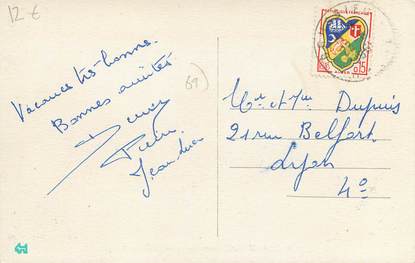 12 €
Vacances très bonnes.
Bonnes amitiés
Jean-Luc
69
REPUBLIQUE FRANÇAISE
ALGER
0,15
Mr et Mme Dupuis
21 rue Belfort
Lyon
4e